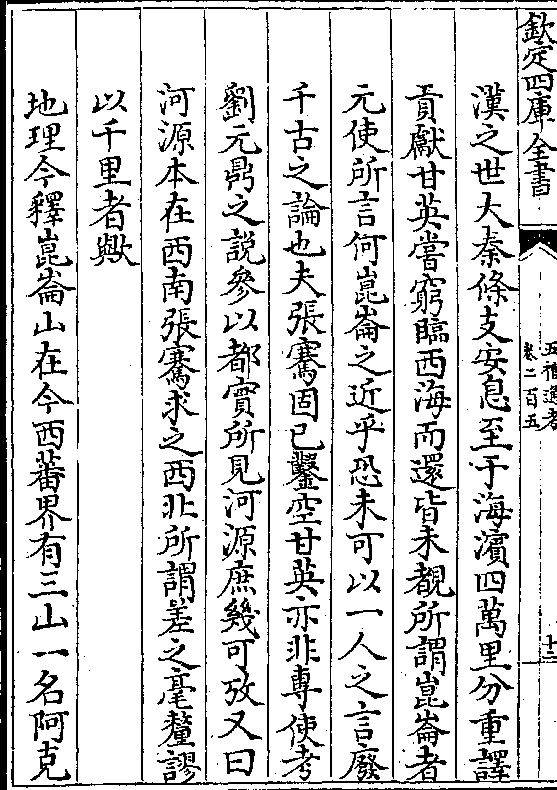 欽定四庫全書
五禮通考
卷二百五
十二
漢之世大秦條支安息至于海濱四萬里外重譯
貢獻甘英嘗窮臨西海而還皆未覩所謂崑崙者
元使所言何崑崙之近乎恐未可以一人之言廢
千古之論也夫張騫固已鑿空甘英亦非專使考
劉元鼎之說參以都實所見河源庶幾可攷又曰
河源本在西南張騫求之西北所謂差之毫釐謬
以千里者歟
地理今釋崑崙山在今西蕃界有三山一名阿克